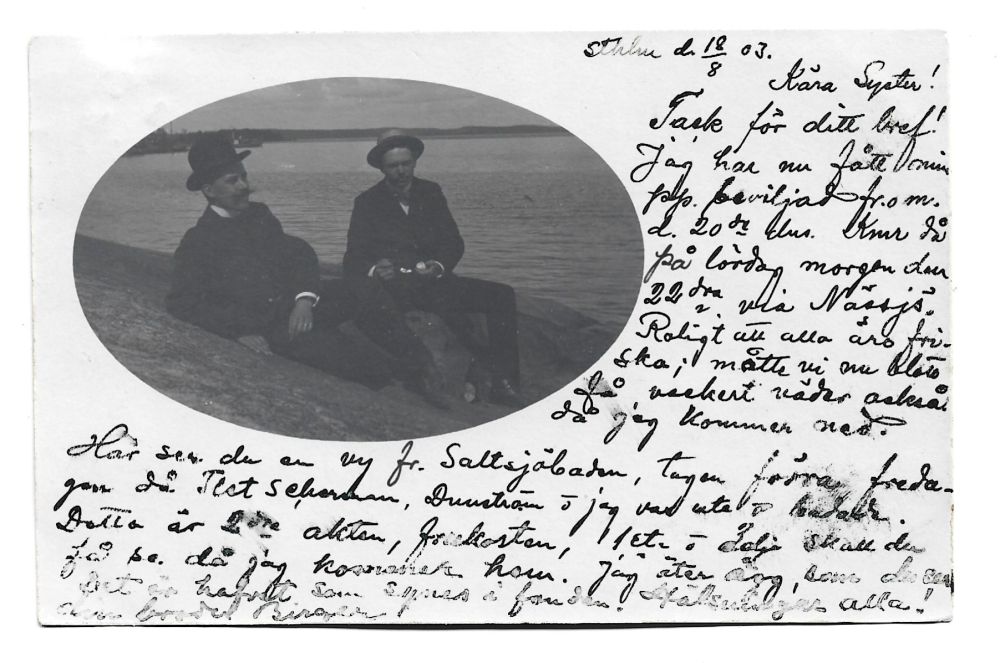 Sthlm d. 18/8 03.
Kära Syster!
Tack för ditt bref!
Jag har nu fått min
pp. beviljad fr. o m.
d. 20de dns. Kmr då
på lördag morgon den
22dra via Nässjö.
Roligt att alla äro fri-
ska; måtte vi nu blott
få vackert väder också
då jag kommer ned.
Här ser du en vy fr. Saltsjöbaden, tagen förra freda-
gen då Tlet Scherman, Dunström o jag var ute o badade.
Detta är 2dra akten, frukosten, 1sta o 3dje skall du
få se då jag kommer hem. Jag äter ägg, som du ser
Det är hafvet som synes i fonden. Hälsningar alla!
den broder Birger